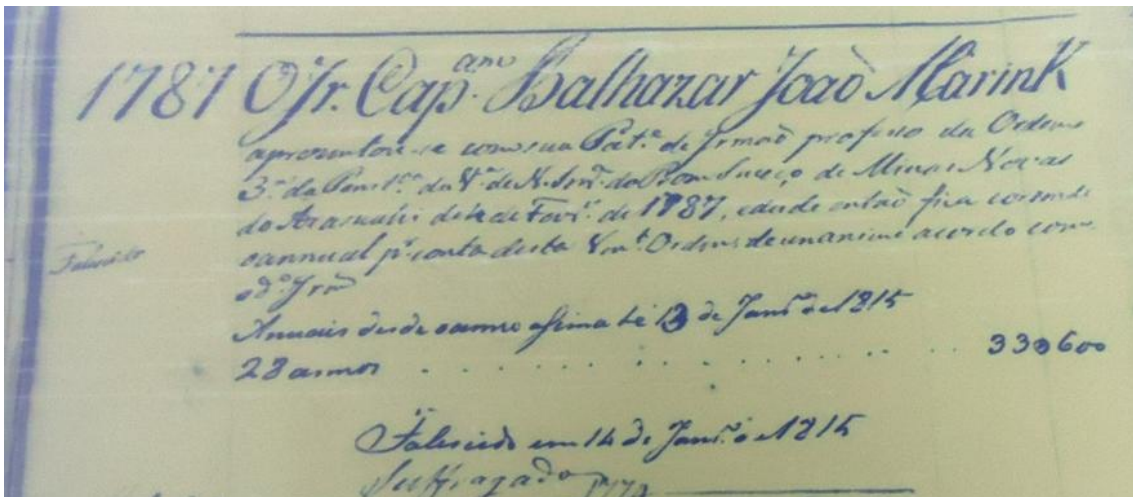 1787 O Jr. Cap.am Balthazar João Marink
aprezentou-se com sua Pat.e de Irmaõ professo da Ordem
3.a da Penit.ca da V.a de N. Snr.a do Bom Suceço de Minas Novas
do Arasuahi de 4 de Fevr.o de 1787, e desde entaõ fica correndo
Falescido
o annual p.r conta desta Ven.l Ordem de unanime acordo com
o d.o Irm
Annuais desde o anno asima té 13 de Janr.o de 1815
28 annos . . . . . . . . . . . 33$600
Falescido em 14 de Janr.o de 1815
Suffragado